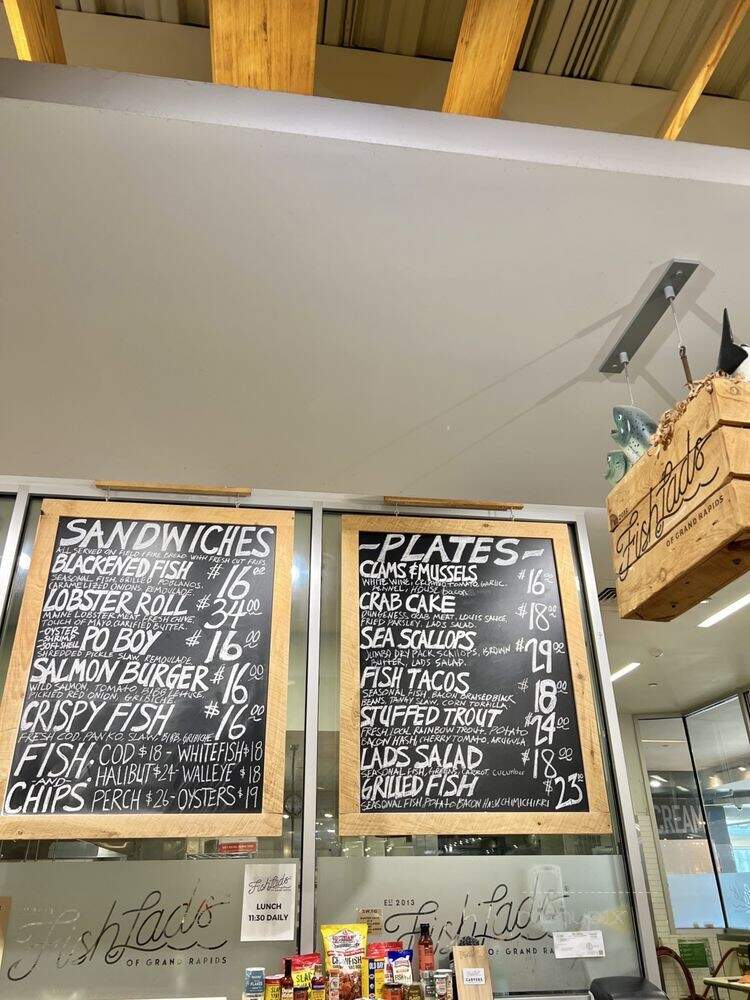 SANDWICHES
ALL SERVED ON FIELD & FIRE BREAD WITH FRESH CUT FRIES
BLACKENED FISH $16.00
SEASONAL FISH, GRILLED POBLANOS,
CARAMELIZED ONIONS, REMOULADE.
LOBSTER ROLL $34.00
MAINE LOBSTER MEAT, FRESH CHIVE,
TOUCH OF MAYO, CLARIFIED BUTTER.
-OYSTER
-SHRIMP
-SOFT SHELL
PO BOY $16.00
SHREDDED PICKLE SLAW, REMOULADE
SALMON BURGER $16.00
WILD SALMON, TOMATO, BIBB LETTUCE,
PICKLED RED ONION, GRIBICHE.
CRISPY FISH $16.00
FRESH COD, PANKO, SLAW, BIBB, GRIBICHE
FISH: COD $18 - WHITEFISH $18
-AND- HALIBUT $24 - WALLEYE $18
CHIPS PERCH $26 - OYSTERS $19
-PLATES-
CLAMS & MUSSELS $16.00
WHITE WINE, CRUSHED TOMATO, GARLIC,
FENNEL, HOUSE bacon
CRAB CAKE $18.00
DUNGENESS CRAB MEAT, LOUIS SAUCE,
FRIED PARSLEY, LADS SALAD.
SEA SCALLOPS $29.00
JUMBO DRY PACK SCALLOPS, BROWN
BUTTER, LADS SALAD.
FISH TACOS $18.00
SEASONAL FISH, BACON BRAISED BLACK
BEANS, TANGY SLAW, CORN TORTILLA
STUFFED TROUT $24.00
FRESH LOCAL RAINBOW TROUT, POTATO
BACON HASH, CHERRY TOMATO, ARUGULA
LADS SALAD $18.00
SEASONAL FISH, GREENS, CARROT, CUCUMBER
GRILLED FISH $23.00
SEASONAL FISH, POTATO BACON HASH, CHIMICHIRRI
FishLads
OF GRAND RAPIDS
CREAM
FishLads
OF GRAND RAPIDS
FishLads
LUNCH
11:30 DAILY
EST 2013
FishLads
OF GRAND RAPIDS
OLD BAY